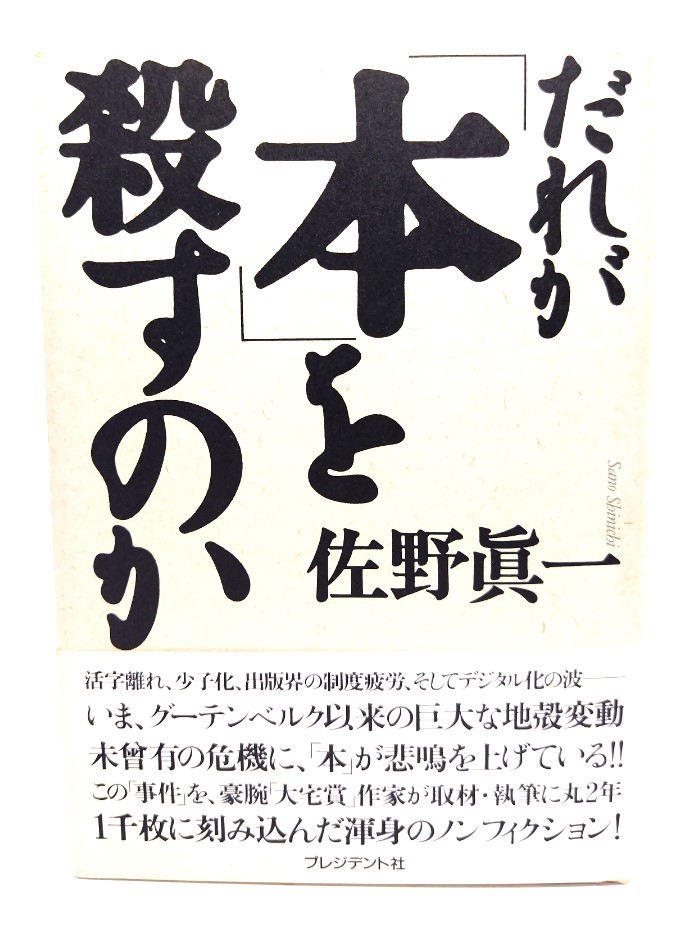 だれが
「本」を
殺すのか
Sano Shinichi
佐野眞一
活字離れ、少子化、出版界の制度疲労、そしてデジタル化の波——
いま、グーテンベルク以来の巨大な地殻変動
未曾有の危機に、「本」が悲鳴を上げている!!
この「事件」を、豪腕「大宅賞」作家が取材・執筆に丸2年
1千枚に刻み込んだ渾身のノンフィクション!
プレジデント社